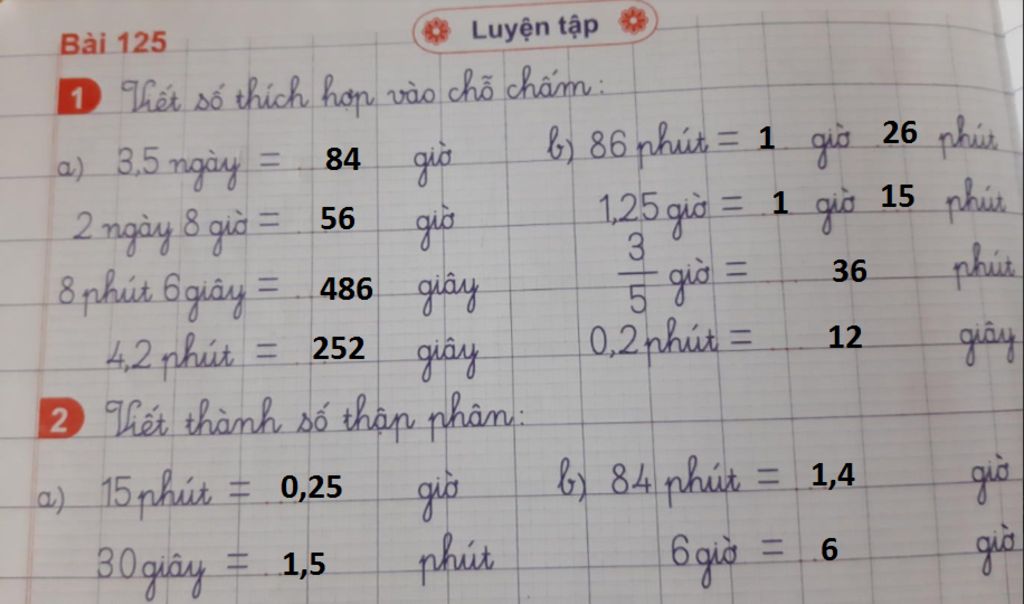 Luyện tập
Bài 125
1 Viết số thích hợp vào chỗ chấm:
a) 3,5 ngày = 84 giờ
2 ngày 8 giờ = 56 giờ
8 phút 6 giây = 486 giây
4,2 phút = 252 giây
b) 86 phút = 1 giờ 26 phút
1,25 giờ = 1 giờ 15 phút
3/5 giờ = 36 phút
0,2 phút = 12 giây
2 Viết thành số thập phân:
a) 15 phút = 0,25 giờ
30 giây = 1,5 phút
b) 84 phút = 1,4 giờ
6 giờ = 6 giờ